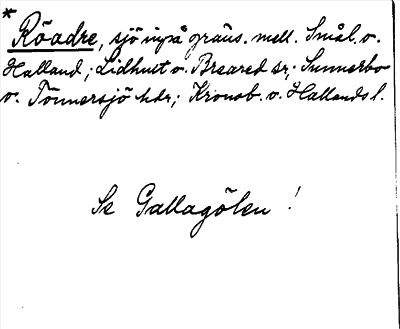 * Röadre, sjö inpå gräns. mell. Smål. o.
Halland; Lidhult o. Breared sr; Sunnerbo
o. Tönnersjö hdr; Kronob. o. Hallands l.
Se Gallagölen!